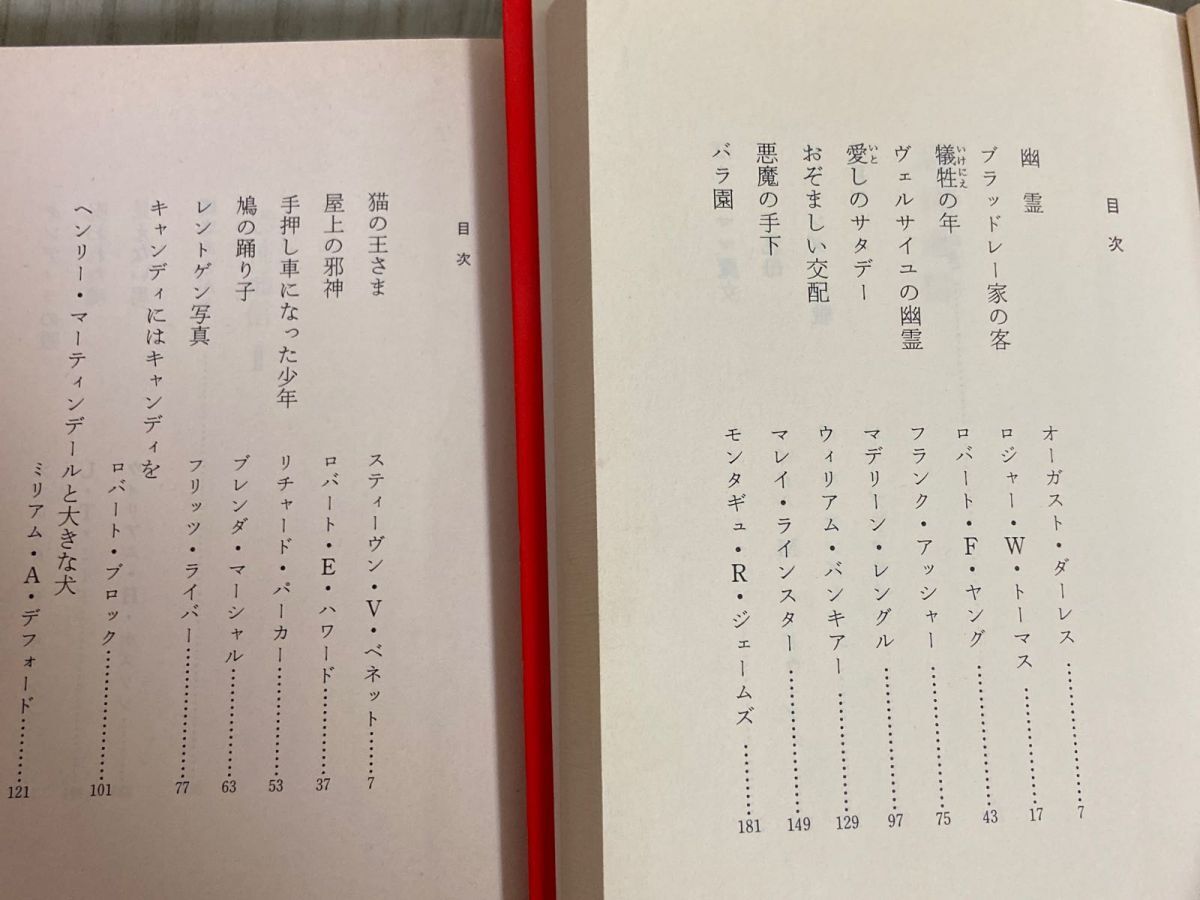 目次
幽霊 オーガスト・ダーレス……………… 7
ブラッドレー家の客 ロジャー・W・トーマス……………… 17
犠牲の年 ロバート・F・ヤング……………… 43
いけにえ
ヴェルサイユの幽霊 フランク・アッシャー……………… 75
愛しのサタデー マデリーン・レングル……………… 97
いと
おぞましい交配 ウィリアム・バンキアー……………… 129
悪魔の手下 マレイ・ラインスター……………… 149
バラ園 モンタギュ・R・ジェームズ……………… 181
目次
猫の王さま スティーヴン・V・ベネット……… 7
屋上の邪神 ロバート・E・ハワード……… 37
手押し車になった少年 リチャード・パーカー……… 53
鳩の踊り子 ブレンダ・マーシャル……… 63
レントゲン写真 フリッツ・ライバー……… 77
キャンディにはキャンディを ロバート・ブロック……… 101
ヘンリー・マーティンデールと大きな犬
ミリアム・A・デフォード……… 121